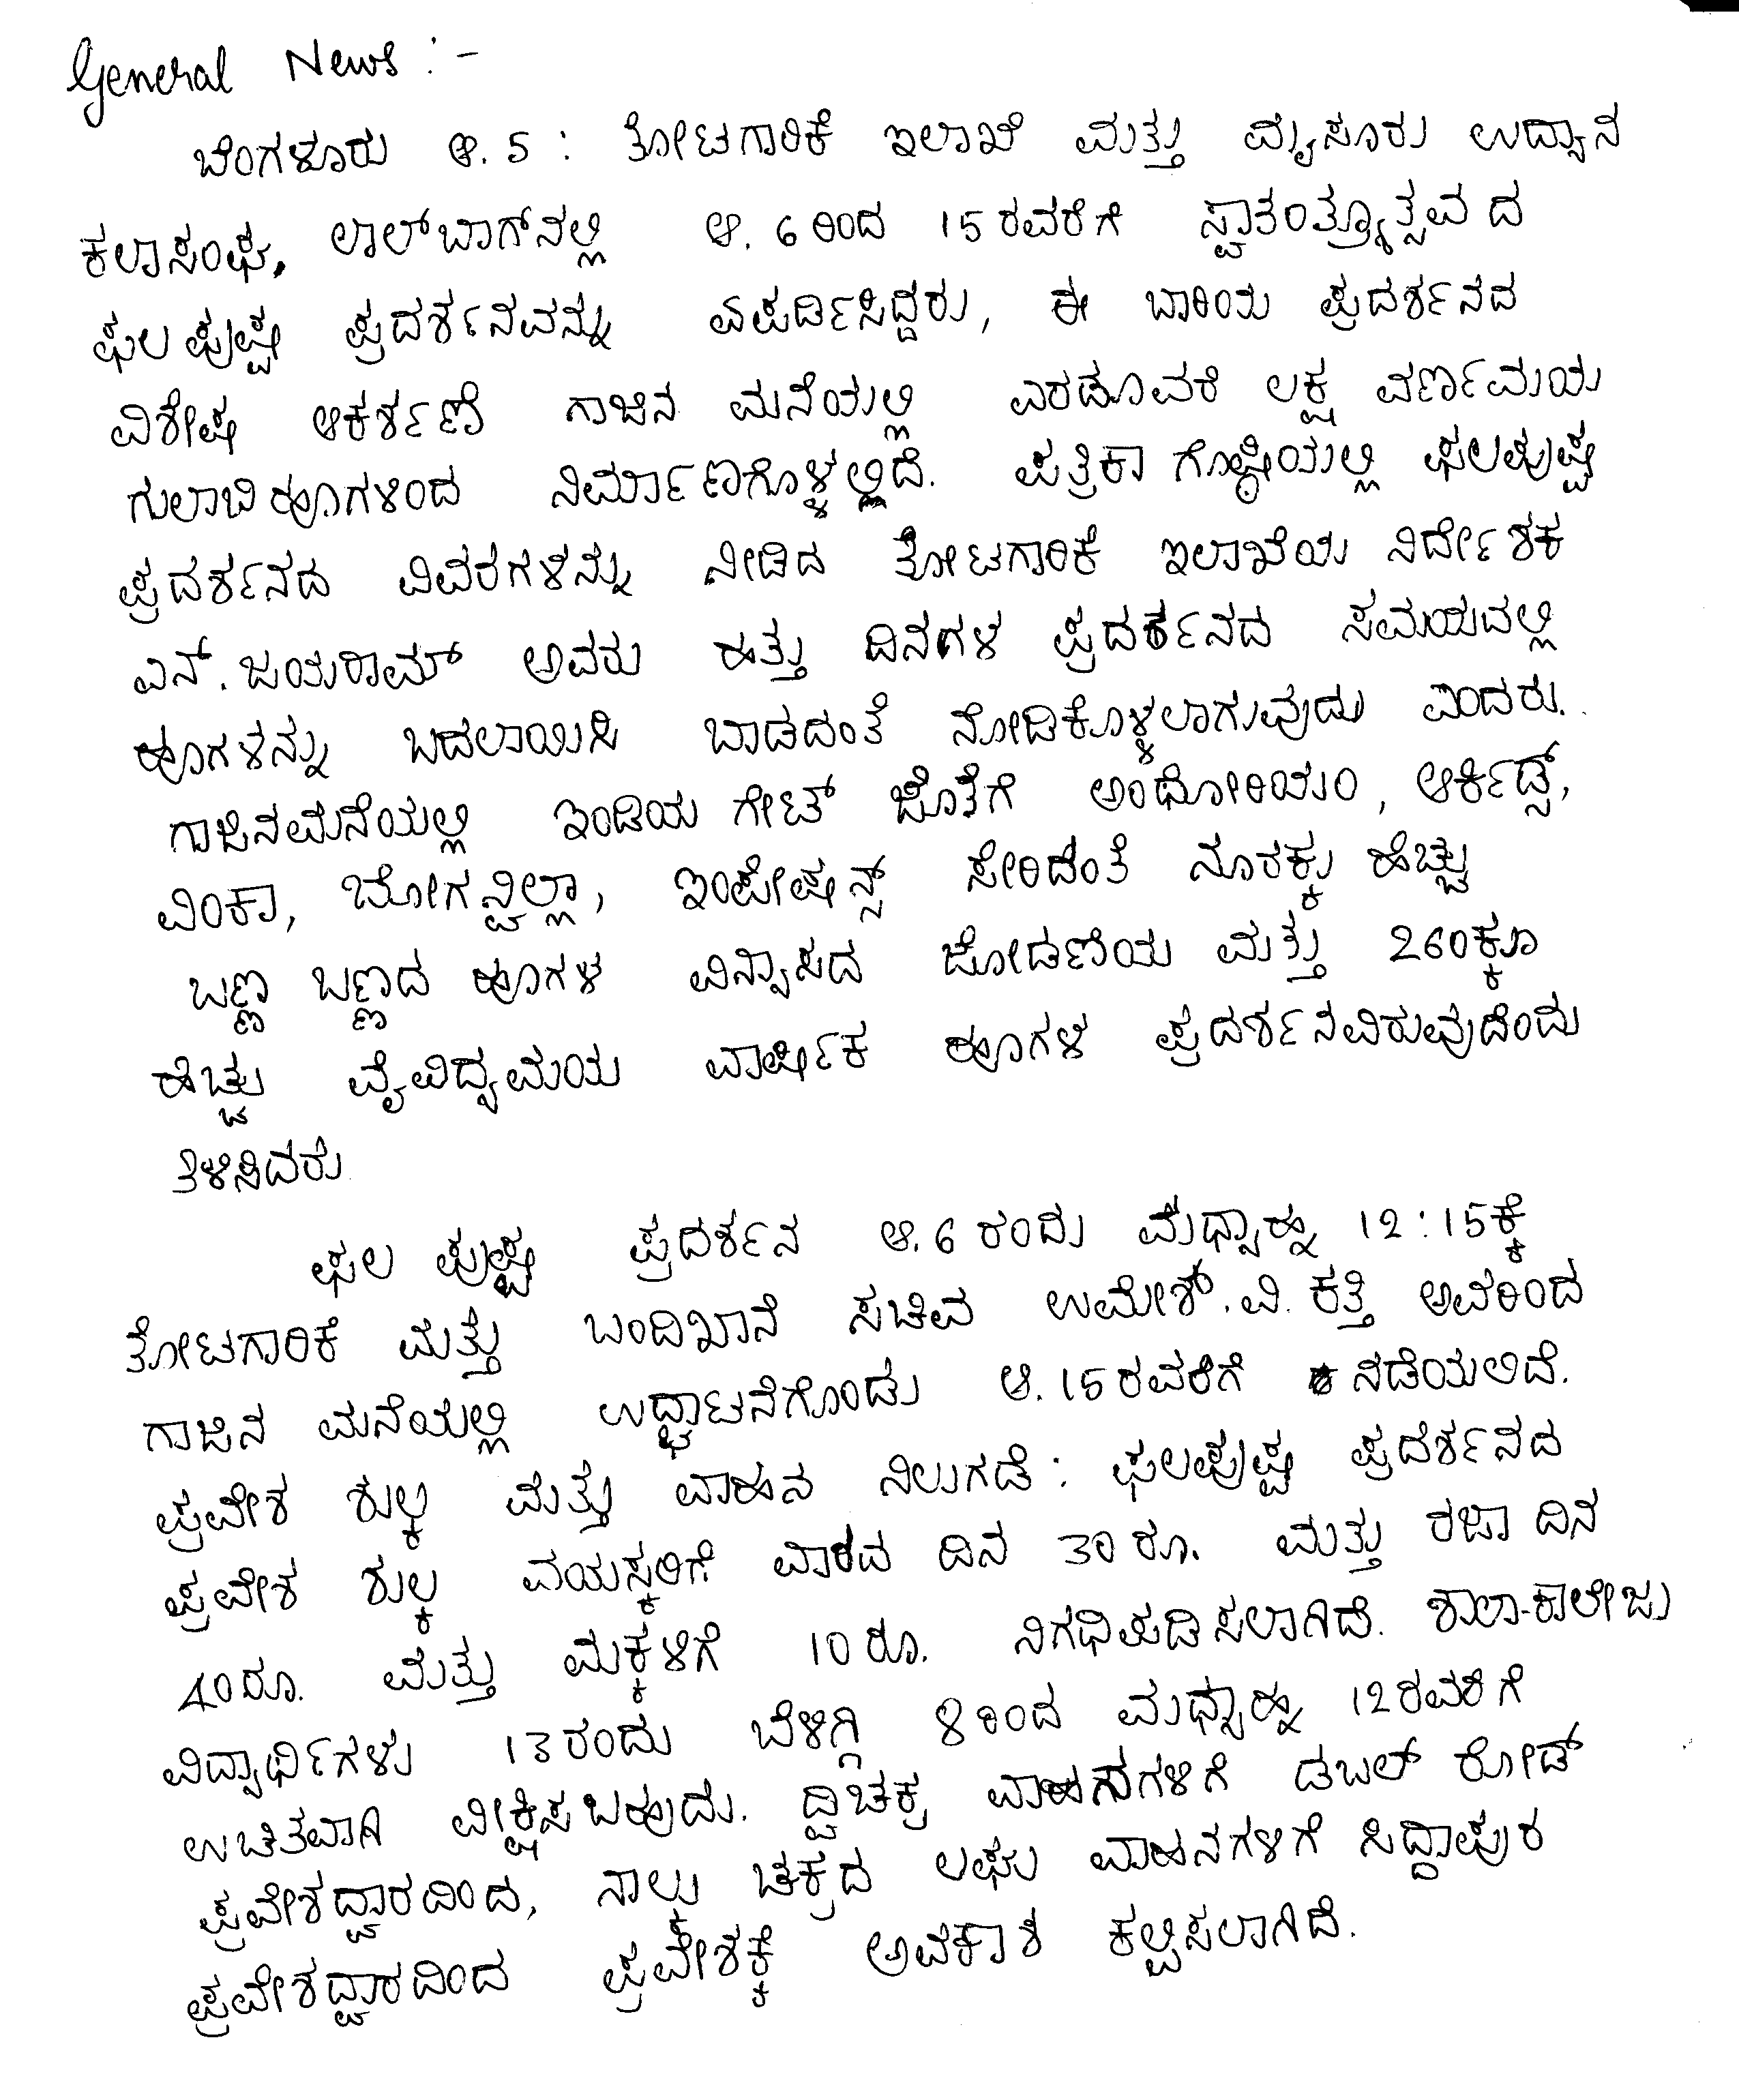 General News :-
ಬೆಂಗಳೂರು ಆ. 5 : ತೋಟಗಾರಿಕೆ ಇಲಾಖೆ ಮತ್ತು ಮೈಸೂರು ಉದ್ಯಾನ
ಕಲಾಸಂಘ, ಲಾಲ್‌ಬಾಗ್‌ನಲ್ಲಿ ಆ. 6 ರಿಂದ 15 ರವರೆಗೆ ಸ್ವಾತಂತ್ರ್ಯೋತ್ಸವ ದ
ಫಲ ಪುಷ್ಪ ಪ್ರದರ್ಶನವನ್ನು ಏಪರ್ಡಿಸಿದ್ದರು, ಈ ಬಾರಿಯ ಪ್ರದರ್ಶನದ
ವಿಶೇಷ ಆಕರ್ಶಣೆ ಗಾಜಿನ ಮನೆಯಲ್ಲಿ ಎರಡೂವರೆ ಲಕ್ಷ ವರ್ಣಮಯ
ಗುಲಾಬಿ ಹೂಗಳಿಂದ ನಿರ್ಮಾಣಗೊಳ್ಳಲ್ಲಿದೆ. ಪತ್ರಿಕಾ ಗೋಷ್ಠಿಯಲ್ಲಿ ಫಲಪುಷ್ಪ
ಪ್ರದರ್ಶನದ ವಿವರಗಳನ್ನು ನೀಡಿದ ತೋಟಗಾರಿಕೆ ಇಲಾಖೆಯ ನಿರ್ದೇಶಕ
ಎನ್. ಜಯರಾಮ್ ಅವರು ಹತ್ತು ದಿನಗಳ ಪ್ರದರ್ಶನದ ಸಮಯದಲ್ಲಿ
ಹೂಗಳನ್ನು ಬದಲಾಯಿಸಿ ಬಾಡದಂತೆ ನೋಡಿಕೊಳ್ಳಲಾಗುವುದು ಎಂದರು.
ಗಾಜಿನಮನೆಯಲ್ಲಿ ಇಂಡಿಯ ಗೇಟ್ ಜೊತೆಗೆ ಅಂಥೋರಿಯಂ, ಆರ್ಕಿಡ್ಸ್,
ವಿಂಕಾ, ಬೋಗನ್ವಿಲ್ಲಾ, ಇಂಪೇಷನ್ಸ್ ಸೇರಿದಂತೆ ನೂರಕ್ಕು ಹೆಚ್ಚು
ಬಣ್ಣ ಬಣ್ಣದ ಹೂಗಳ ವಿನ್ಯಾಸದ ಜೋಡಣೆಯ ಮತ್ತು 260ಕ್ಕೂ
ಹೆಚ್ಚು ವೈವಿದ್ಯಮಯ ವಾರ್ಷಿಕ ಹೂಗಳ ಪ್ರದರ್ಶನವಿರುವುದೆಂದು
ತಿಳಿಸಿದರು
ಫಲ ಪುಷ್ಪ ಪ್ರದರ್ಶನ ಆ. 6 ರಂದು ಮಧ್ಯಾಹ್ನ 12 : 15ಕ್ಕೆ
ತೋಟಗಾರಿಕೆ ಮತ್ತು ಬಂದಿಖಾನೆ ಸಚಿವ ಉಮೇಶ್. ವಿ. ಕತ್ತಿ ಅವರಿಂದ
ಗಾಜಿನ ಮನೆಯಲ್ಲಿ ಉದ್ಘಾಟನೆಗೊಂಡು ಆ. 15ರವರೆಗೆ ನಡೆಯಲಿದೆ.
ಪ್ರವೇಶ ಶುಲ್ಕ ಮತ್ತು ವಾಹನ ನಿಲುಗಡೆ : ಫಲಪುಷ್ಪ ಪ್ರದರ್ಶನದ
ಪ್ರವೇಶ ಶುಲ್ಕ ವಯಸ್ಕರಿಗೆ ವಾರದ ದಿನ 30 ರೂ. ಮತ್ತು ರಜಾ ದಿನ
40ರೂ. ಮತ್ತು ಮಕ್ಕಳಿಗೆ 10 ರೂ. ನಿಗಧಿಪಡಿಸಲಾಗಿದೆ. ಶಾಲಾ-ಕಾಲೇಜು
ವಿದ್ಯಾರ್ಥಿಗಳು 13 ರಂದು ಬೆಳಿಗ್ಗಿ 8ರಿಂದ ಮಧ್ಯಾಹ್ನ 12ರವರೆಗೆ
ಉಚಿತವಾಗಿ ವೀಕ್ಷಿಸಬಹುದು. ದ್ವಿಚಕ್ರ ವಾಹನಗಳಿಗೆ ಡಬಲ್ ರೋಡ್
ಪ್ರವೇಶದ್ವಾರದಿಂದ, ನಾಲ್ಕು ಚಕ್ರದ ಲಘು ವಾಹನಗಳಿಗೆ ಸಿದ್ದಾಪುರ
ಪ್ರವೇಶದ್ವಾರದಿಂದ ಪ್ರವೇಶಕ್ಕೆ ಅವಕಾಶ ಕಲ್ಪಿಸಲಾಗಿದೆ.